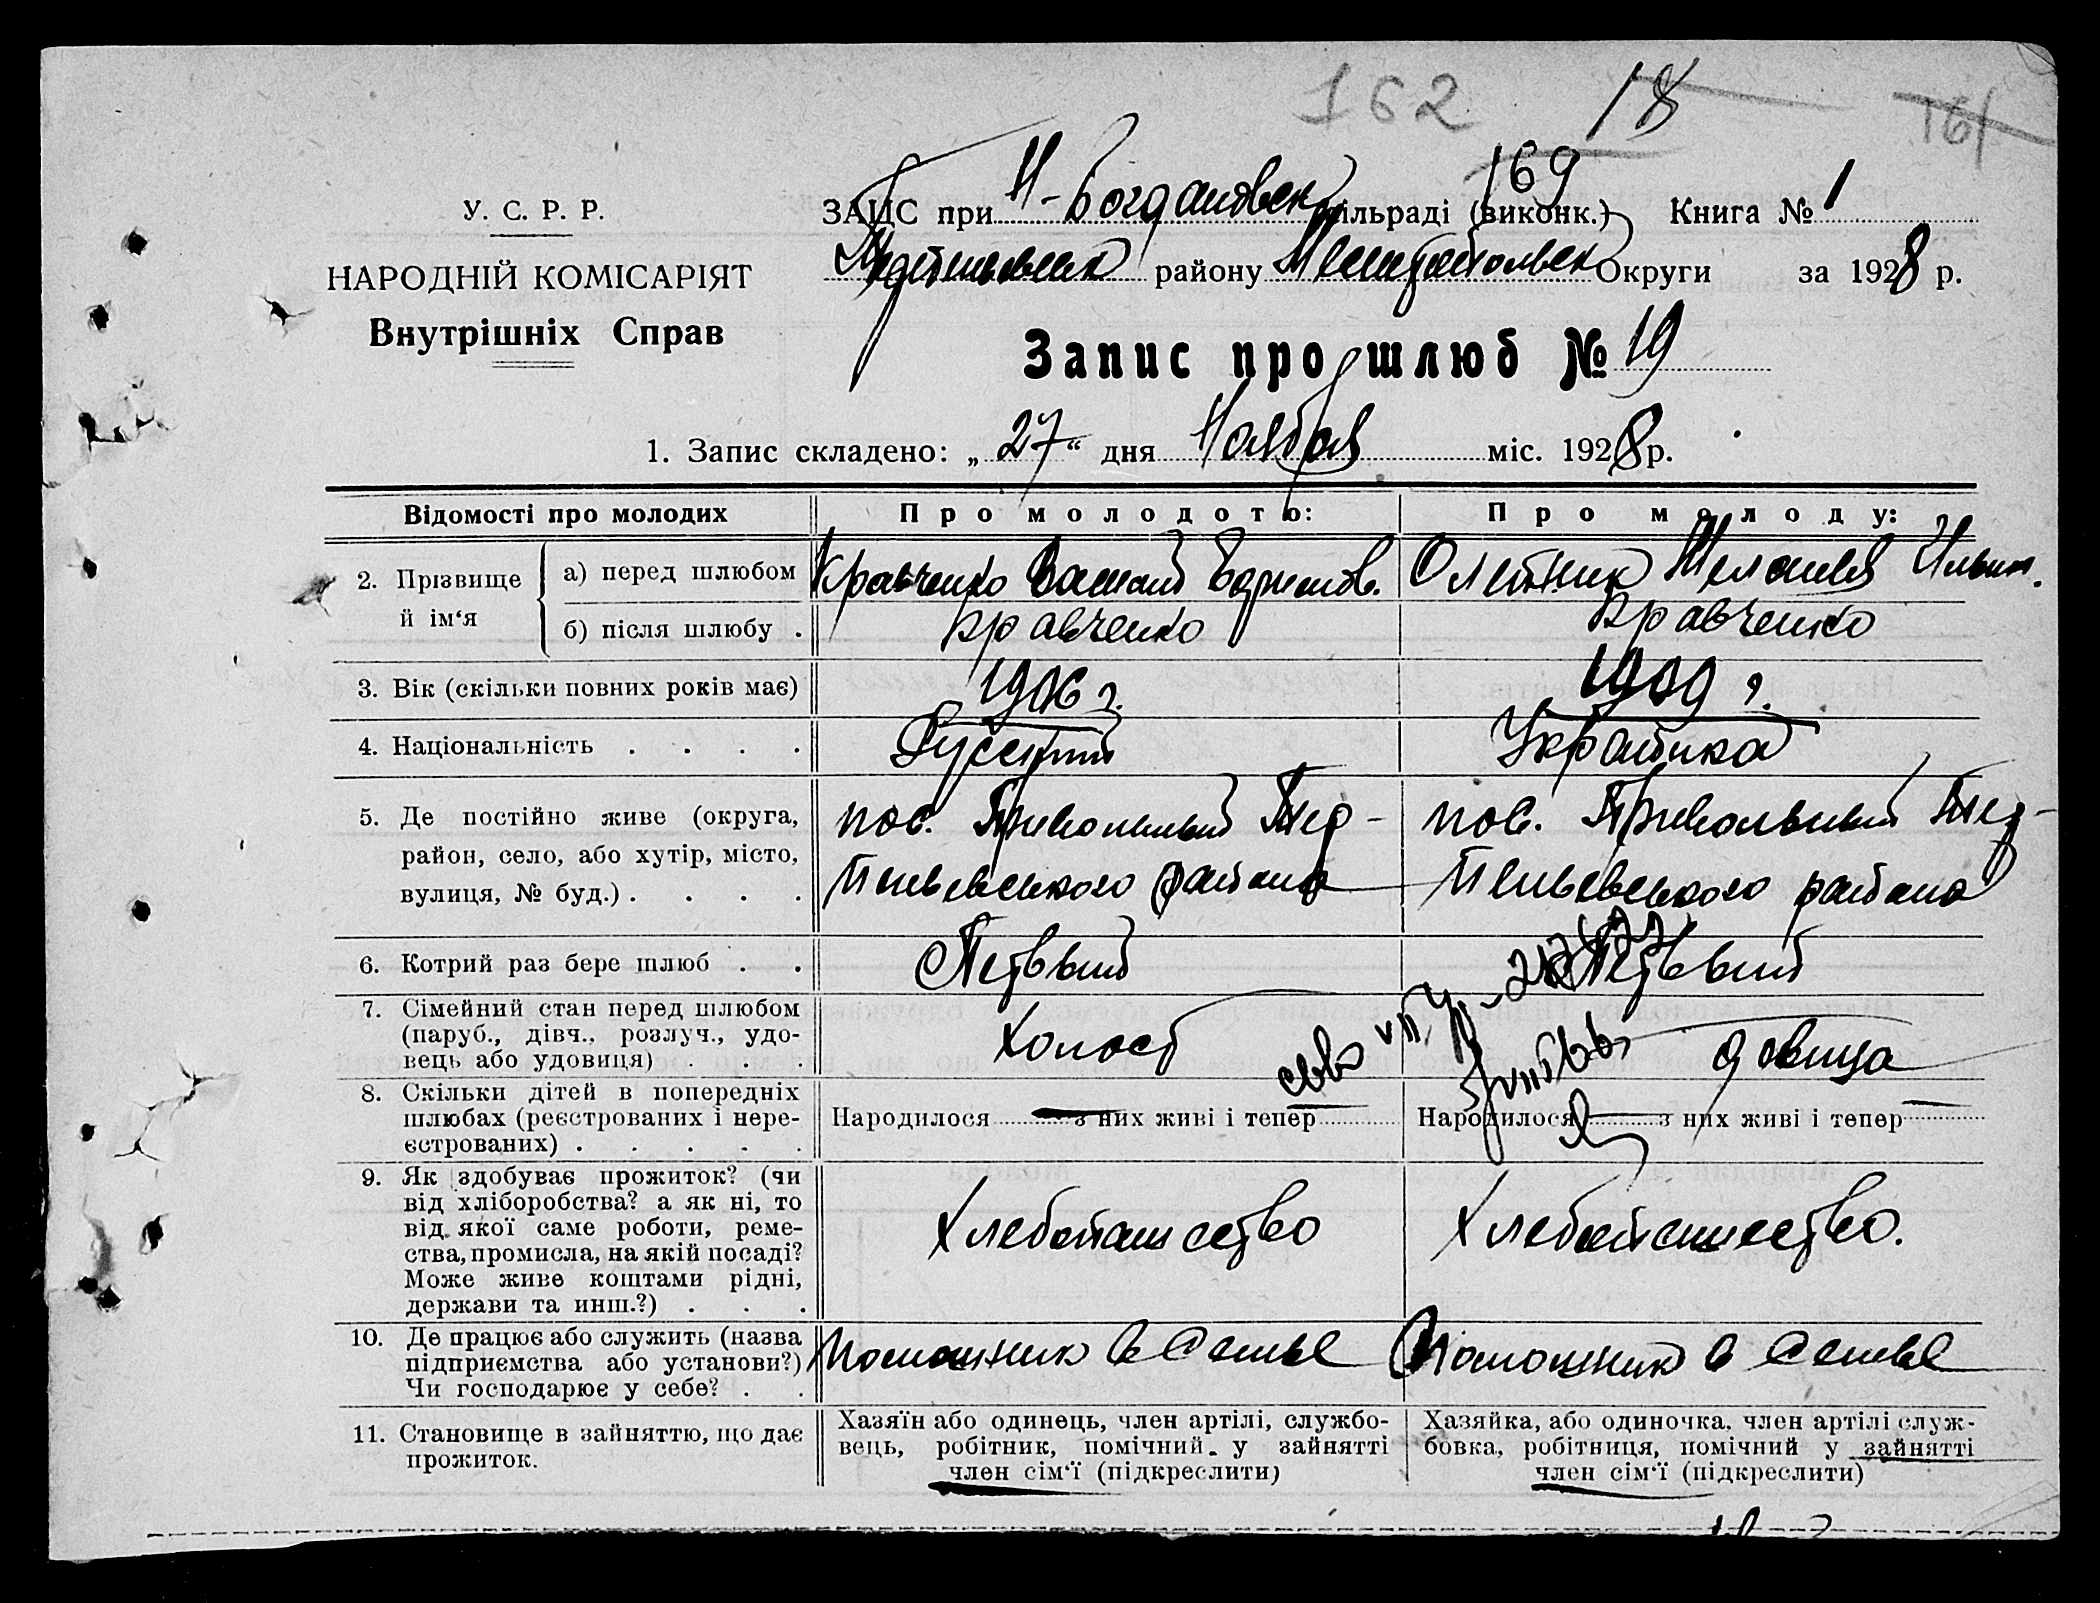 162 18 161
169
У. С. Р. Р.
ЗАЦС при Н-Богдановск сільраді (виконк.) Книга № 1
НАРОДНІЙ КОМІСАРІЯТ
району Мелитопольск Округи за 1928 р.
Внутрішніх Справ
Запис про шлюб № 19
1. Запис складено: „ 27 “ дня Ноября міс. 1928 р.
Відомості про молодих
Про молодого:
Про молоду:
2. Прізвище й ім‘я
а) перед шлюбом
Кравченко Василий Ефимов.
Олейник Меланья Ильин.
б) після шлюбу .
Кравченко
Кравченко
3. Вік (скільки повних років має)
1906 г.
1909 г.
4. Національність . . . .
Русский
Украинка
5. Де постійно живе (округа,
район, село, або хутір, місто,
вулиця, № буд.) . . . .
пос. Привольный Тер-
пеньевського района
пос. Привольный Тер-
пеньевського района
6. Котрий раз бере шлюб . .
Первый
Первый
7. Сімейний стан перед шлюбом
(паруб., дівч., розлуч., удо-
вець або удовиця) . . .
Холост
девица
8. Скільки дітей в попередніх
шлюбах (реєстрованих і нере-
єстрованих) . . . . .
Народилося з них живі і тепер
Народилося з них живі і тепер
9. Як здобуває прожиток? (чи
від хліборобства? а як ні, то
від якої саме роботи, реме-
ства, промисла, на якій посаді?
Може живе коштами рідні,
держави та инш.?) . . .
Хлебопашество
Хлебопашество.
10. Де працює або служить (назва
підприємства або установи?)
Чи господарює у себе? . .
Помошник в семье
Помошник в семье
11. Становище в зайняттю, що дає
прожиток.
Хазяїн або одинець, член артілі, службо-
вець, робітник, помічний у зайнятті
член сім‘ї (підкреслити)
Хазяйка, або одиночка, член артілі служ-
бовка, робітниця, помічний у зайнятті
член сім‘ї (підкреслити)